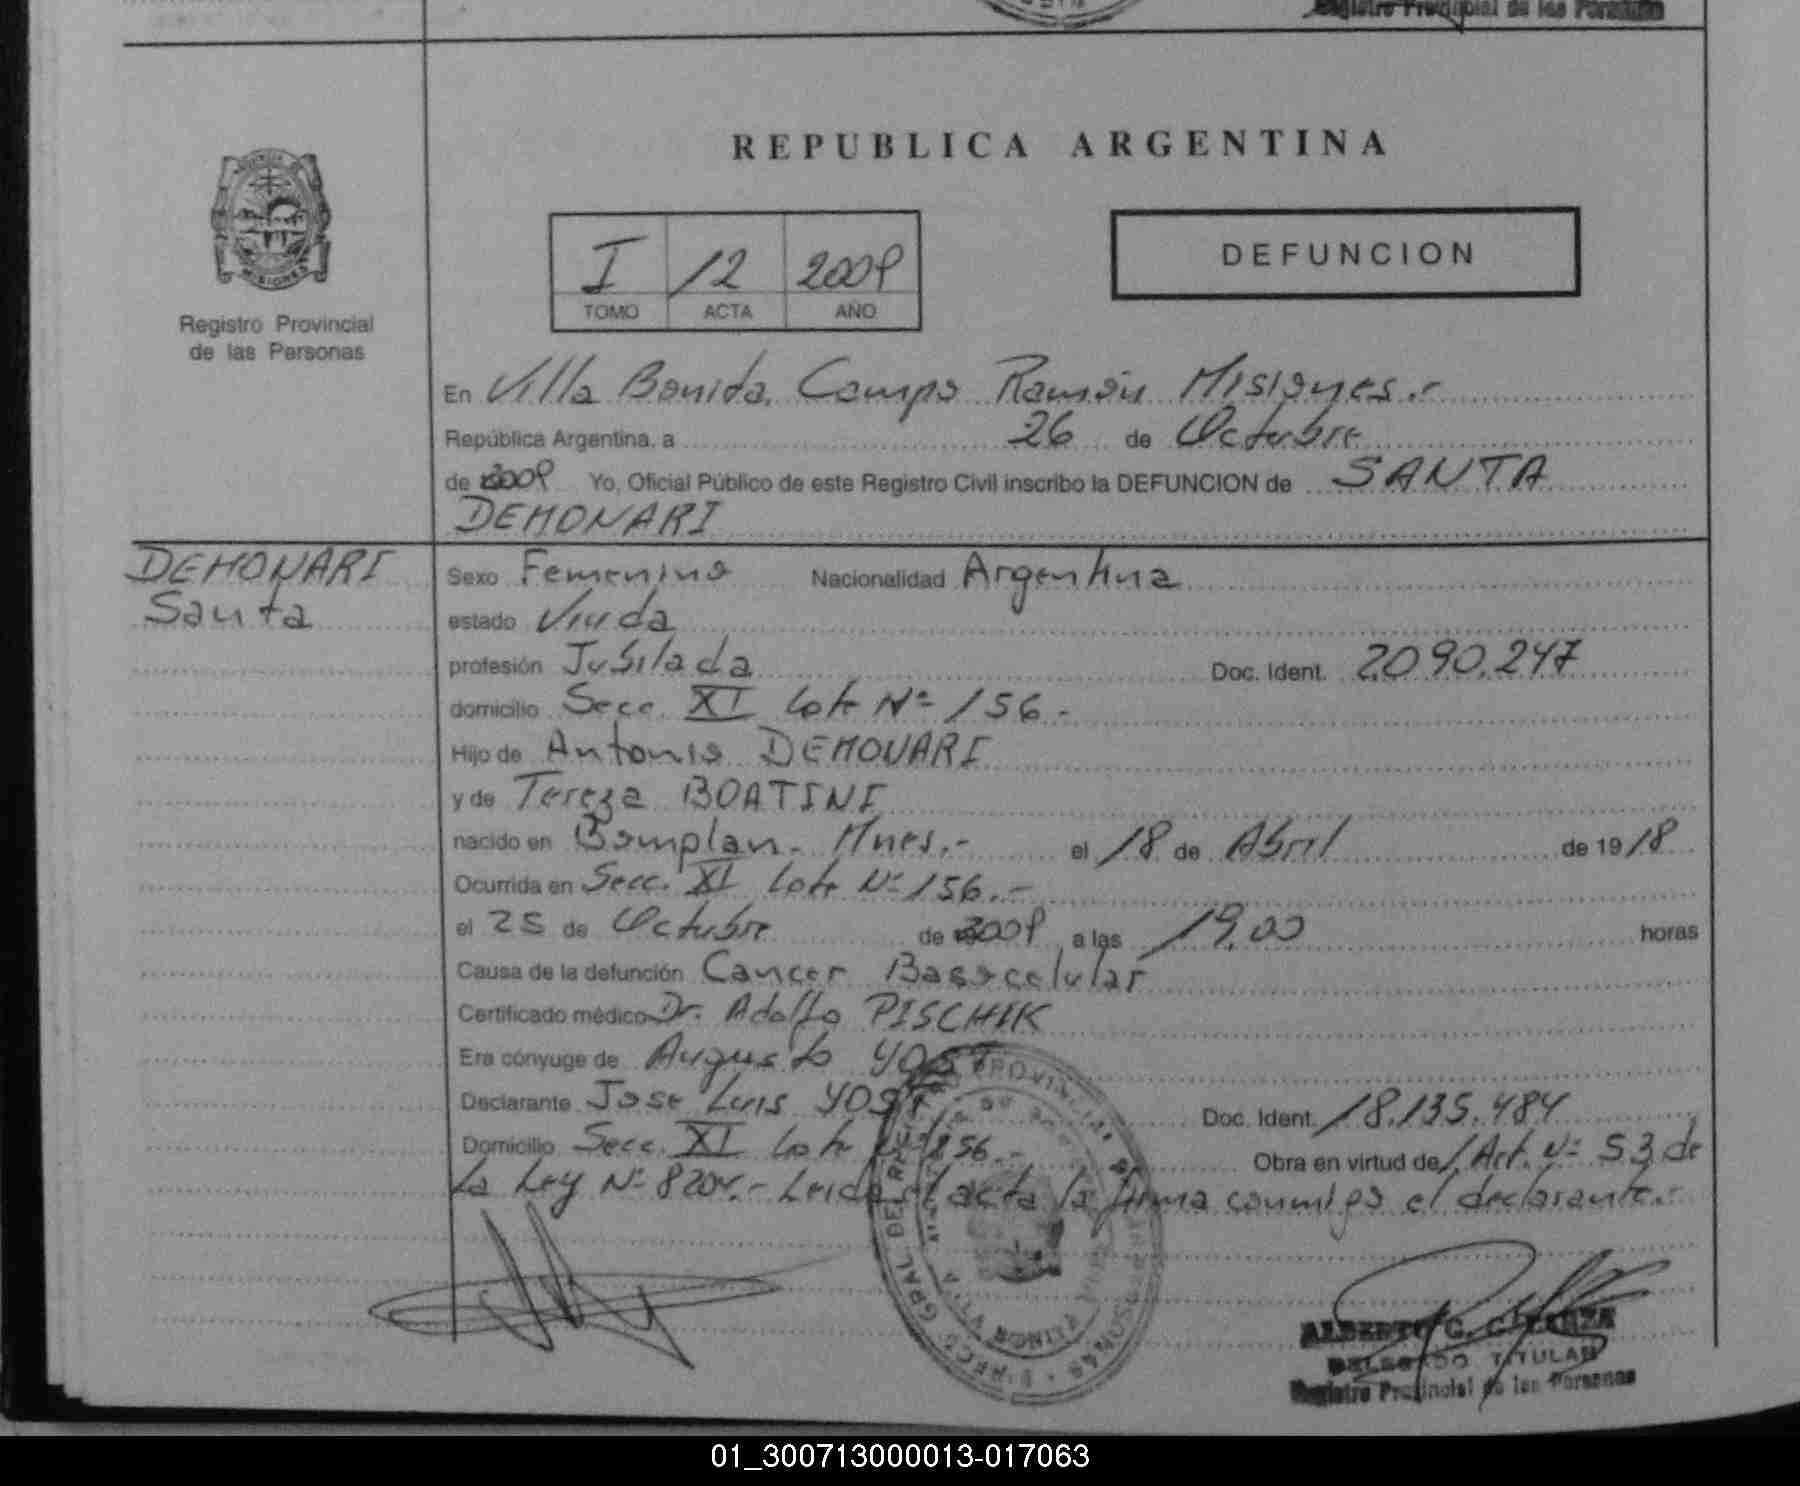 Registro Provincial de las Personas
REPUBLICA ARGENTINA
MISIONES
Registro Provincial
de las Personas
I 12 2009
TOMO ACTA AÑO
DEFUNCION
En Villa Bonita, Campo Ramón Misiones.-
República Argentina, a 26 de Octubre
de 2009 Yo, Oficial Público de este Registro Civil inscribo la DEFUNCION de SANTA
DEMONARI
DEMONARI
Santa
Sexo Femenino Nacionalidad Argentina
estado Viuda
profesión Jubilada Doc. Ident. 2.090.247
domicilio Secc. XI Lote Nº 156.-
Hijo de Antonio DEMONARI
y de Tereza BOATINI
nacido en Bomplan. Mnes.- el 18 de Abril de 1918
Ocurrida en Secc. XI Lote Nº 156.-
el 25 de Octubre de 2009 a las 19,00 horas
Causa de la defunción Cancer Basocelular
Certificado médico Dr. Adolfo PISCHIK
Era cónyuge de Augusto YOST
Declarante Jose Luis YOST Doc. Ident. 18.135.484
Domicilio Secc. XI Lote Nº 156.- Obra en virtud del Art. Nº 53 de
La Ley Nº 8204.- Leida el acta la firma conmigo el declarante.-
VILLA BONITA
ALBERTO G.
DELEGADO TITULAR
Registro Provincial de las Personas
01_300713000013-017063